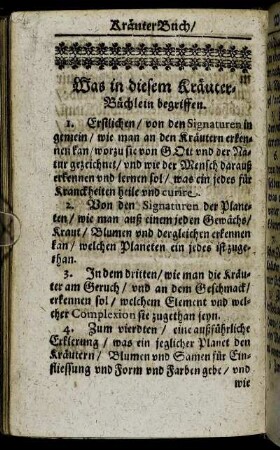 KräuterBuch/
Was in diesem Kräuter-
Büchlein begriffen.
1. Erstlichen / von den Signaturen in
genein / wie man an den Kräutern erken-
nen kan / worzu sie von GOtt vnd der Na-
tur gezeichnet / vnd wie der Mensch darauß
erkennen vnd lernen sol / was ein jedes für
Kranckheiten heile vnd curire.
2. Von den Signaturen der Plane-
ten / wie man auß einem jeden Gewächs /
Kraut / Blumen vnd dergleichen erkennen
kan / welchen Planeten ein jedes ist zuge-
than.
3. In dem dritten / wie man die Kräu-
ter am Geruch / vnd an dem Geschmack /
erkennen sol / welchem Element vnd wel-
cher Complexion sie zugethan seyn.
4. Zum vierdten / eine außführliche
Erklerung / was ein jeglicher Planet den
Kräutern / Blumen vnd Samen für Ein-
fliessung vnd Form vnd Farben gebe / vnd
wie